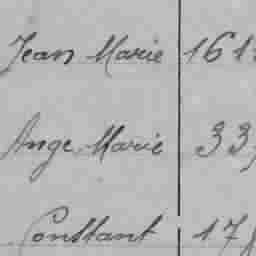 Jean Marie 161
Ange Marie 33
Constant 17